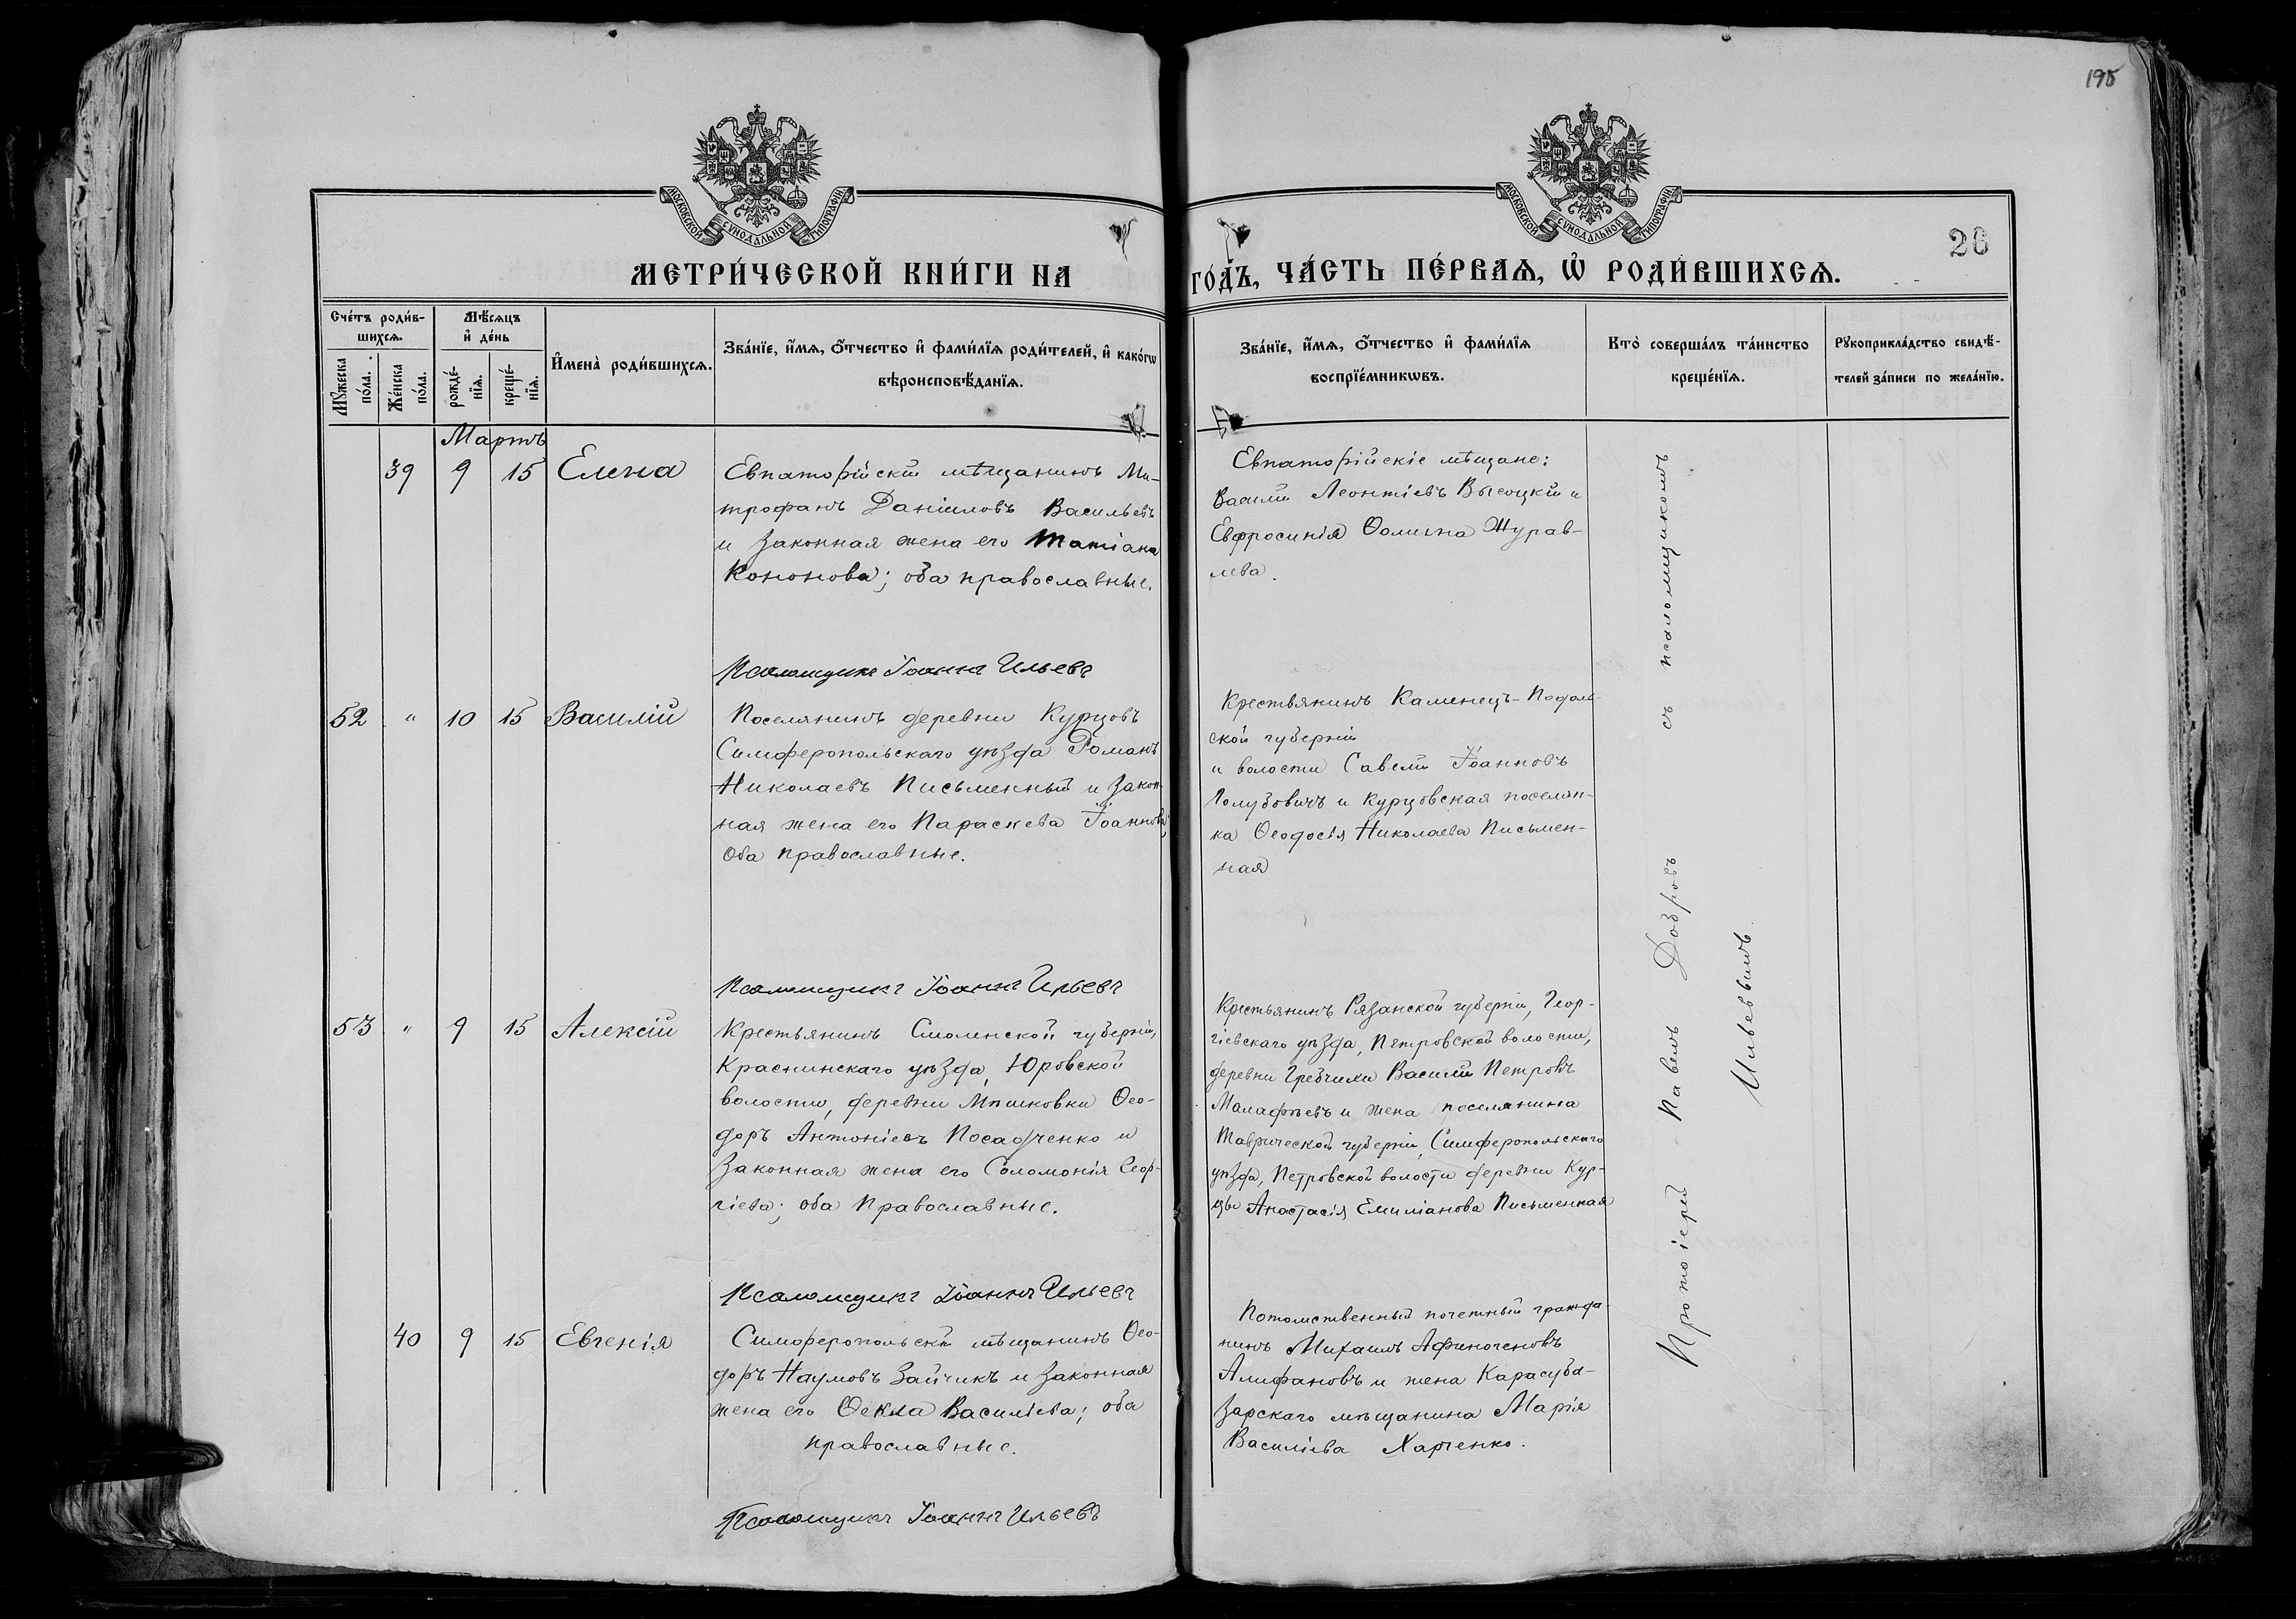 195
МОСКОВСКОЙ СѴНОДАЛЬНОЙ ТИПОГРАФІИ
МОСКОВСКОЙ СѴНОДАЛЬНОЙ ТИПОГРАФІИ
26
МЕТРИ́ЧЕСКОЙ КНИ́ГИ НА
ГО́ДЪ, ЧА́СТЬ ПЕ́РВАѦ, Ѡ҆ РОДИ́ВШИХСѦ.
Сче́тъ роди́в-
шихсѧ.
Мꙋ́жеска
по́ла.
Же́нска
по́ла.
Мѣ́сѧцъ
и҆ де́нь
рожде́-
нїѧ.
креще́-
нїѧ.
И҆мена̀ роди́вшихсѧ.
Зва́нїе, и҆́мѧ, ѻ҆́тчество и҆ фами́лїѧ роди́телей, и҆ како́гѡ
вѣроисповѣ́данїѧ.
Зва́нїе, и҆́мѧ, ѻ҆́тчество и҆ фами́лїѧ
воспрїе́мникѡвъ.
Кто̀ соверша́лъ та́инство
креще́нїѧ.
Рꙋкоприкла́дство свидѣ́-
телей за́писи по жела́нїю.
Мартъ
39 9 15 Елена
Евпаторійскій мѣщанинъ Ми-
трофанъ Даніиловъ Васильевъ
и законная жена его Татіана
Кононова; оба православные.
Псаломщикъ Іоаннъ Ильевъ
Евпаторійскіе мѣщане:
Василій Леонтіевъ Высоцкій и
Евфросинія Ѳомина Журав-
лева.
52 " 10 15 Василій
Поселянинъ деревни Курцовъ
Симферопольскаго уѣзда Романъ
Николаевъ Письменный и закон-
ная жена его Параскева Іоаннова;
оба православные.
Псаломщикъ Іоаннъ Ильевъ
Крестьянинъ Каменецъ-Подоль-
ской губерніи
и волости Савелій Іоанновъ
Голубовичъ и Курцовская поселян-
ка Ѳеодосія Николаева Письмен-
ная
53 " 9 15 Алексій
Крестьянинъ Смоленской губерніи,
Краснинскаго уѣзда, Юровской
волости, деревни Мишковки Ѳео-
доръ Антоніевъ Посадченко и
законная жена его Соломонія Геор-
гіева; оба православные.
Псаломщикъ Іоаннъ Ильевъ
Крестьянинъ Рязанской губерніи, Геор-
гіевскаго уѣзда, Петровской волости,
деревни Василій Петровъ
Малафѣевъ и жена поселянина
Таврической губерніи, Симферопольскаго
уѣзда, Петровской волости деревни Кур-
цы Анастасія Емиліанова Письменная
40 9 15 Евгенія
Симферопольскій мѣщанинъ Ѳео-
доръ Наумовъ Зайчикъ и законная
жена его Ѳекла Василіева; оба
православные.
Псаломщикъ Іоаннъ Ильевъ
Потомственный почетный гражда-
нинъ Михаилъ Афиногеновъ
Алифановъ и жена Карасуба-
зарскаго мѣщанина Марія
Василіева Харченко.
Протоіерей Павелъ Добровъ съ псаломщикомъ
Ильевымъ.